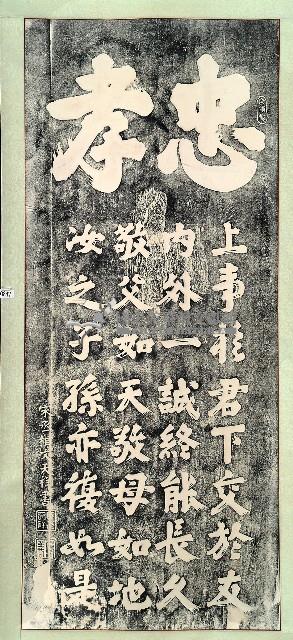 忠孝
上事於君下交於友
內外一誠終能長久
敬父如天敬母如地
汝之子孫亦復如是
宋丞相文天祥書